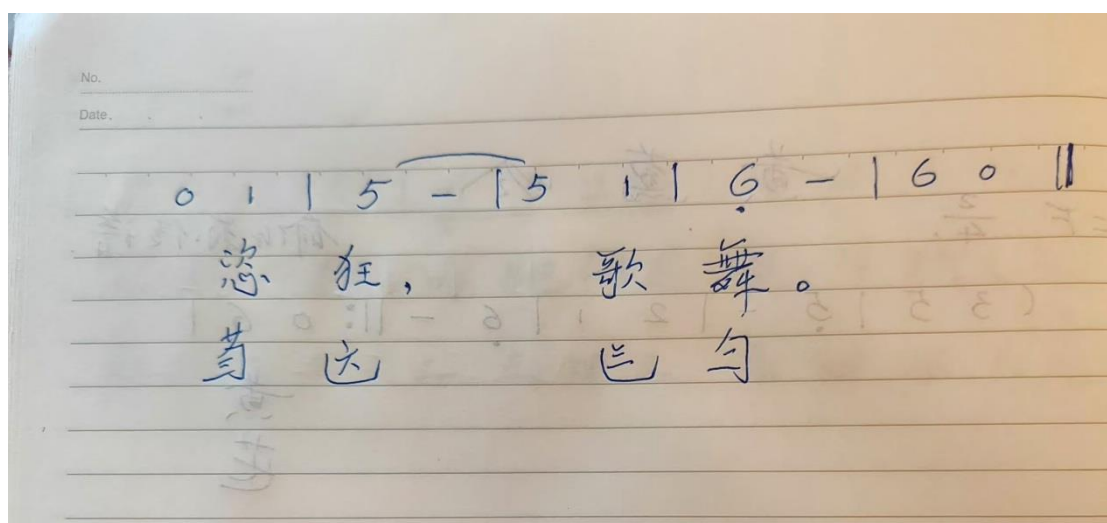 No.
Date.
0 1 | 5 - | 5 1 | 6̣ - | 6 0 ‖
恣 狂， 歌 舞。